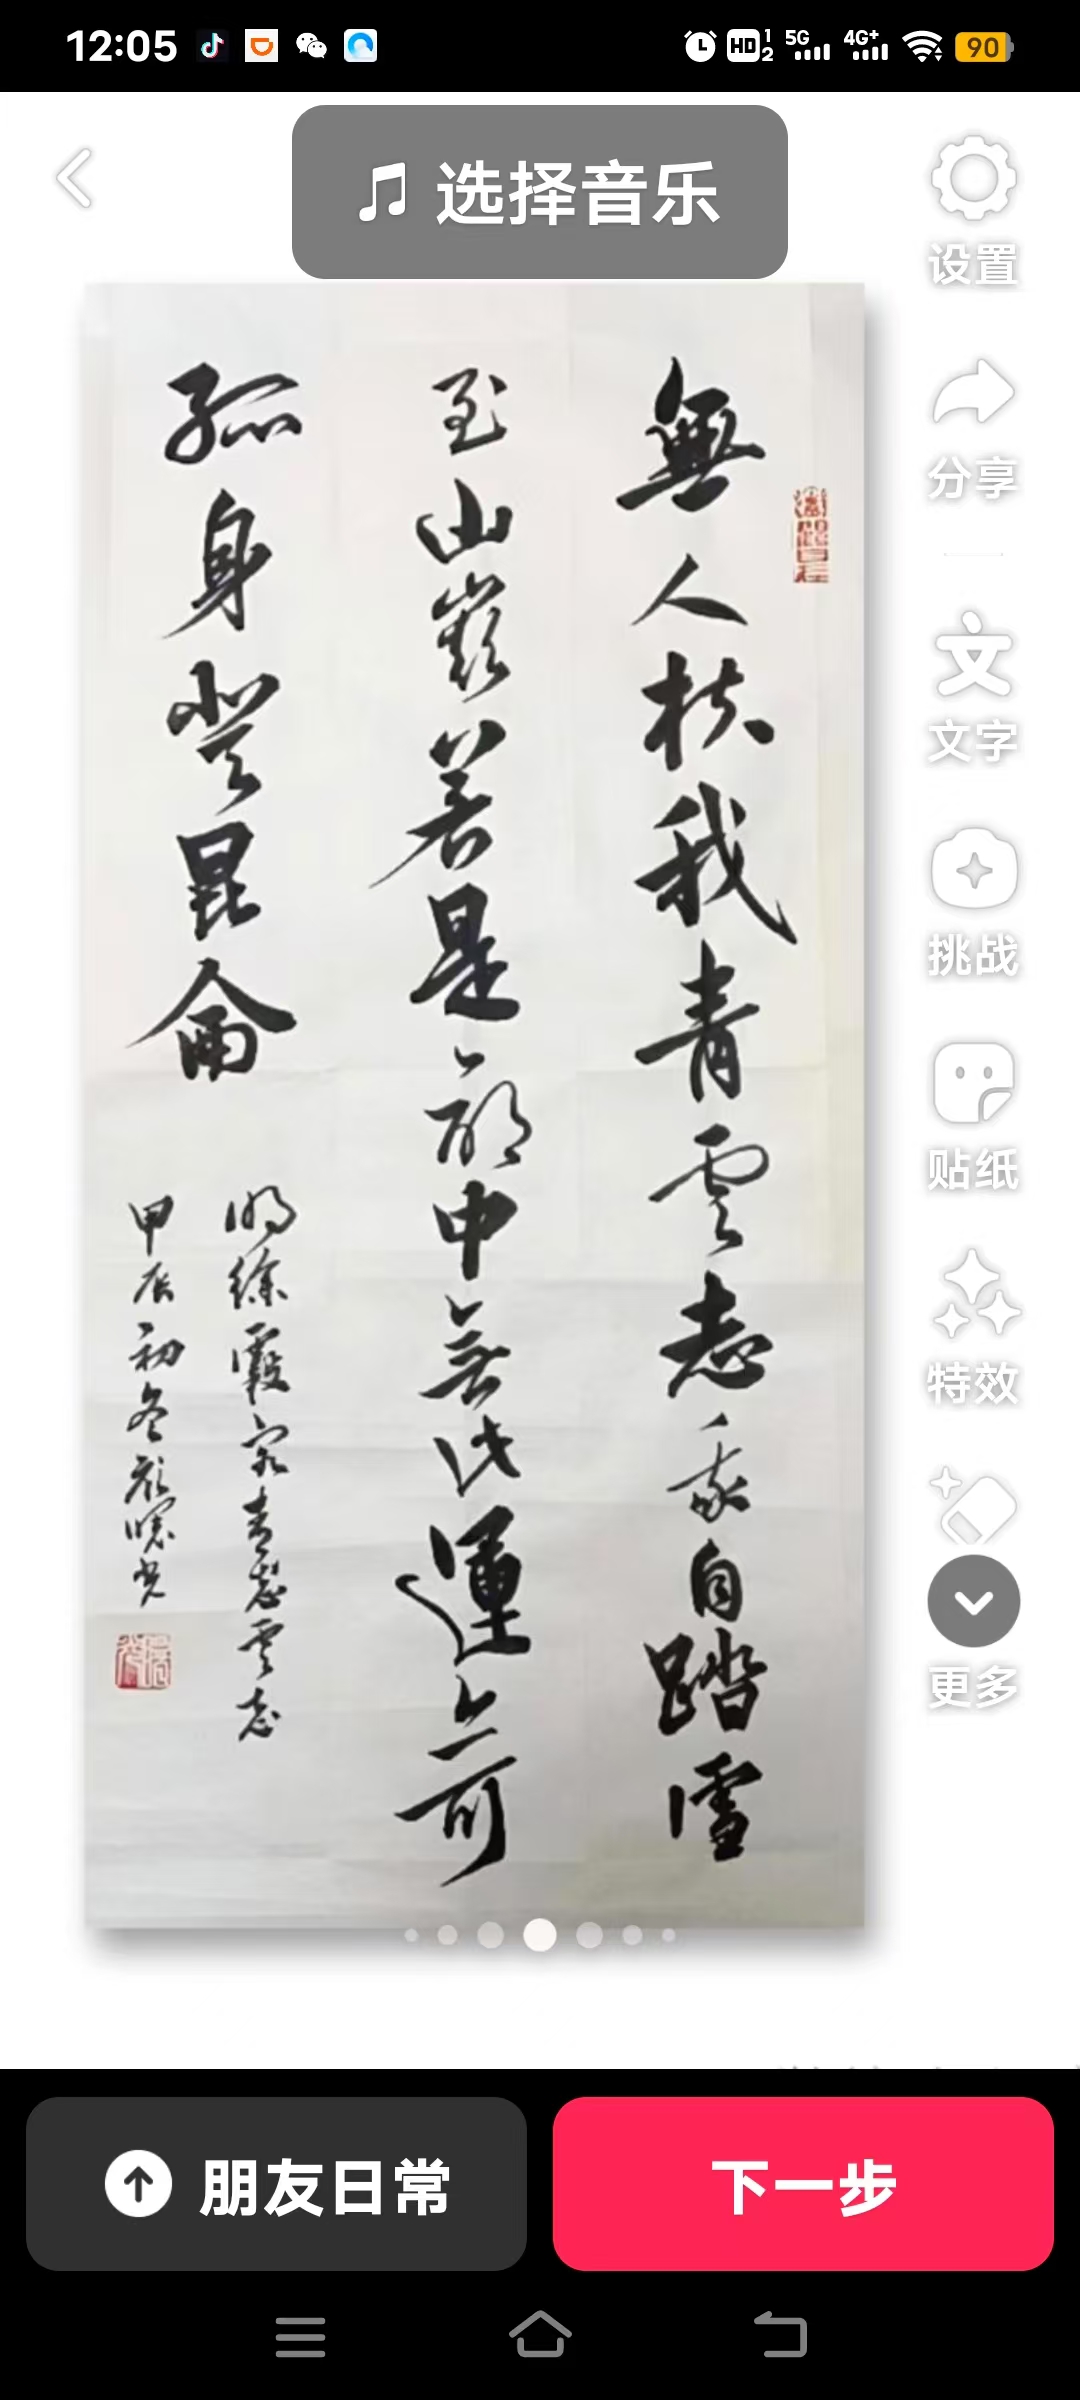 12:05
HD 1 2
5G
4G+
90
选择音乐
设置
分享
文字
挑战
贴纸
特效
更多
無人扶我青雲志我自踏雪
至山巔若是命中無此運亦可
孤身登昆侖
明徐霞客青雲志
甲辰初冬
朋友日常
下一步